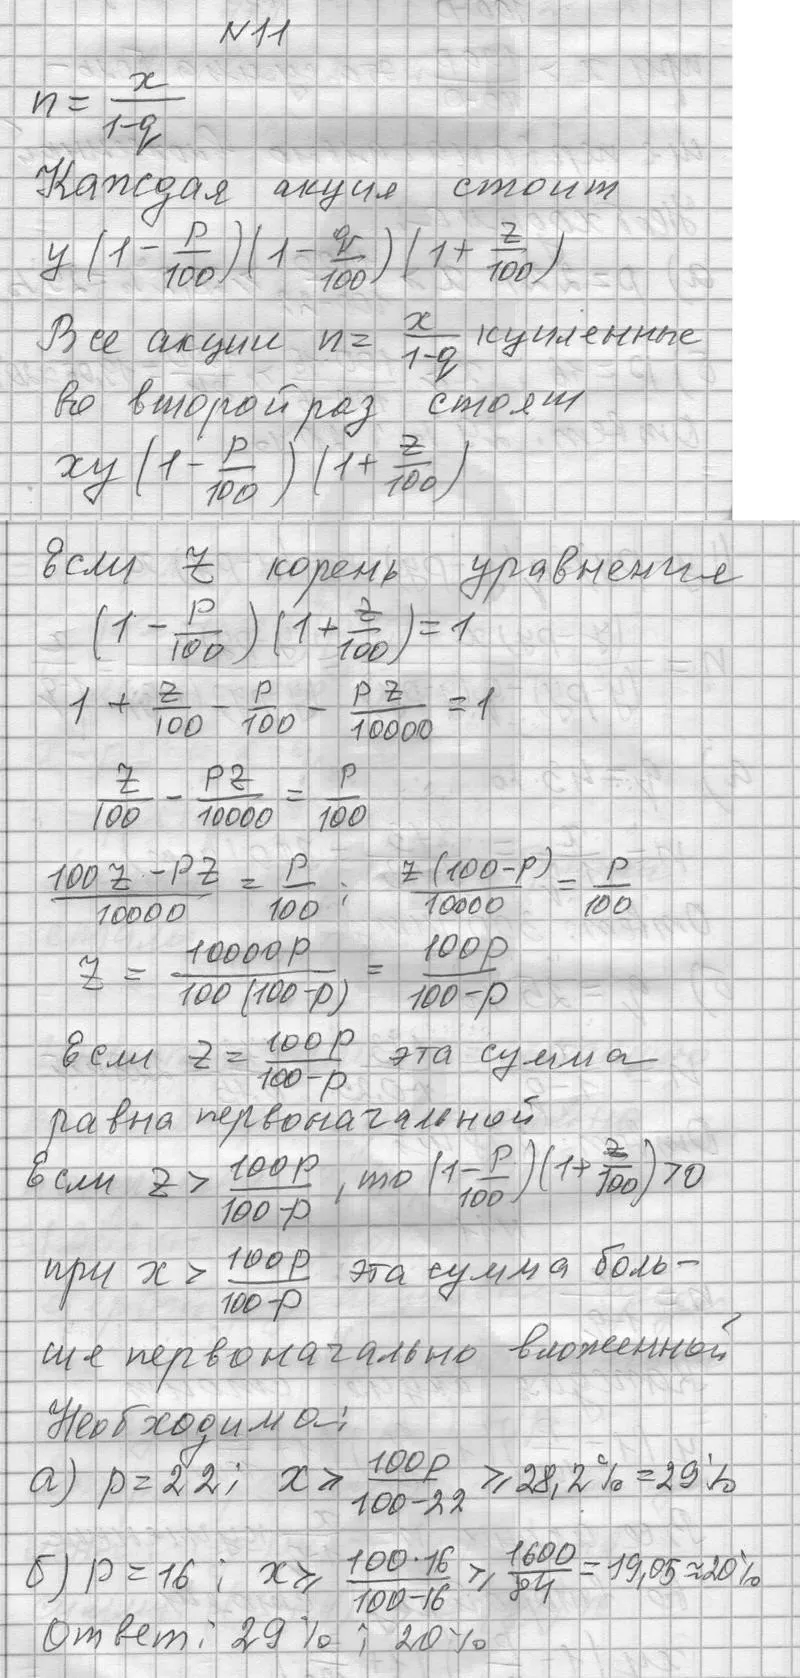 N11
n = x/(1-q)
Каждая акция стоит
y(1 - p/100)(1 - q/100)(1 + z/100)
Все акции n = x/(1-q) купленные
во второй раз стоят
xy(1 - p/100)(1 + z/100)
Если z корень уравнения
(1 - p/100)(1 + z/100) = 1
1 + z/100 - p/100 - pz/10000 = 1
z/100 - pz/10000 = p/100
(100z - pz)/10000 = p/100; z(100-p)/10000 = p/100
z = 10000p/(100(100-p)) = 100p/(100-p)
Если z = 100p/(100-p) эта сумма
равна первоначальной
Если z > 100p/(100-p), то (1 - p/100)(1 + z/100) > 0
при x > 100p/(100-p) эта сумма боль-
ше первоначально вложенной
Необходимо:
а) p = 22; x ⩾ 100p/(100-22) ⩾ 28,2% = 29%
б) p = 16; x ⩾ (100·16)/(100-16) ⩾ 1600/84 = 19,05 ≈ 20%
Ответ: 29%; 20%